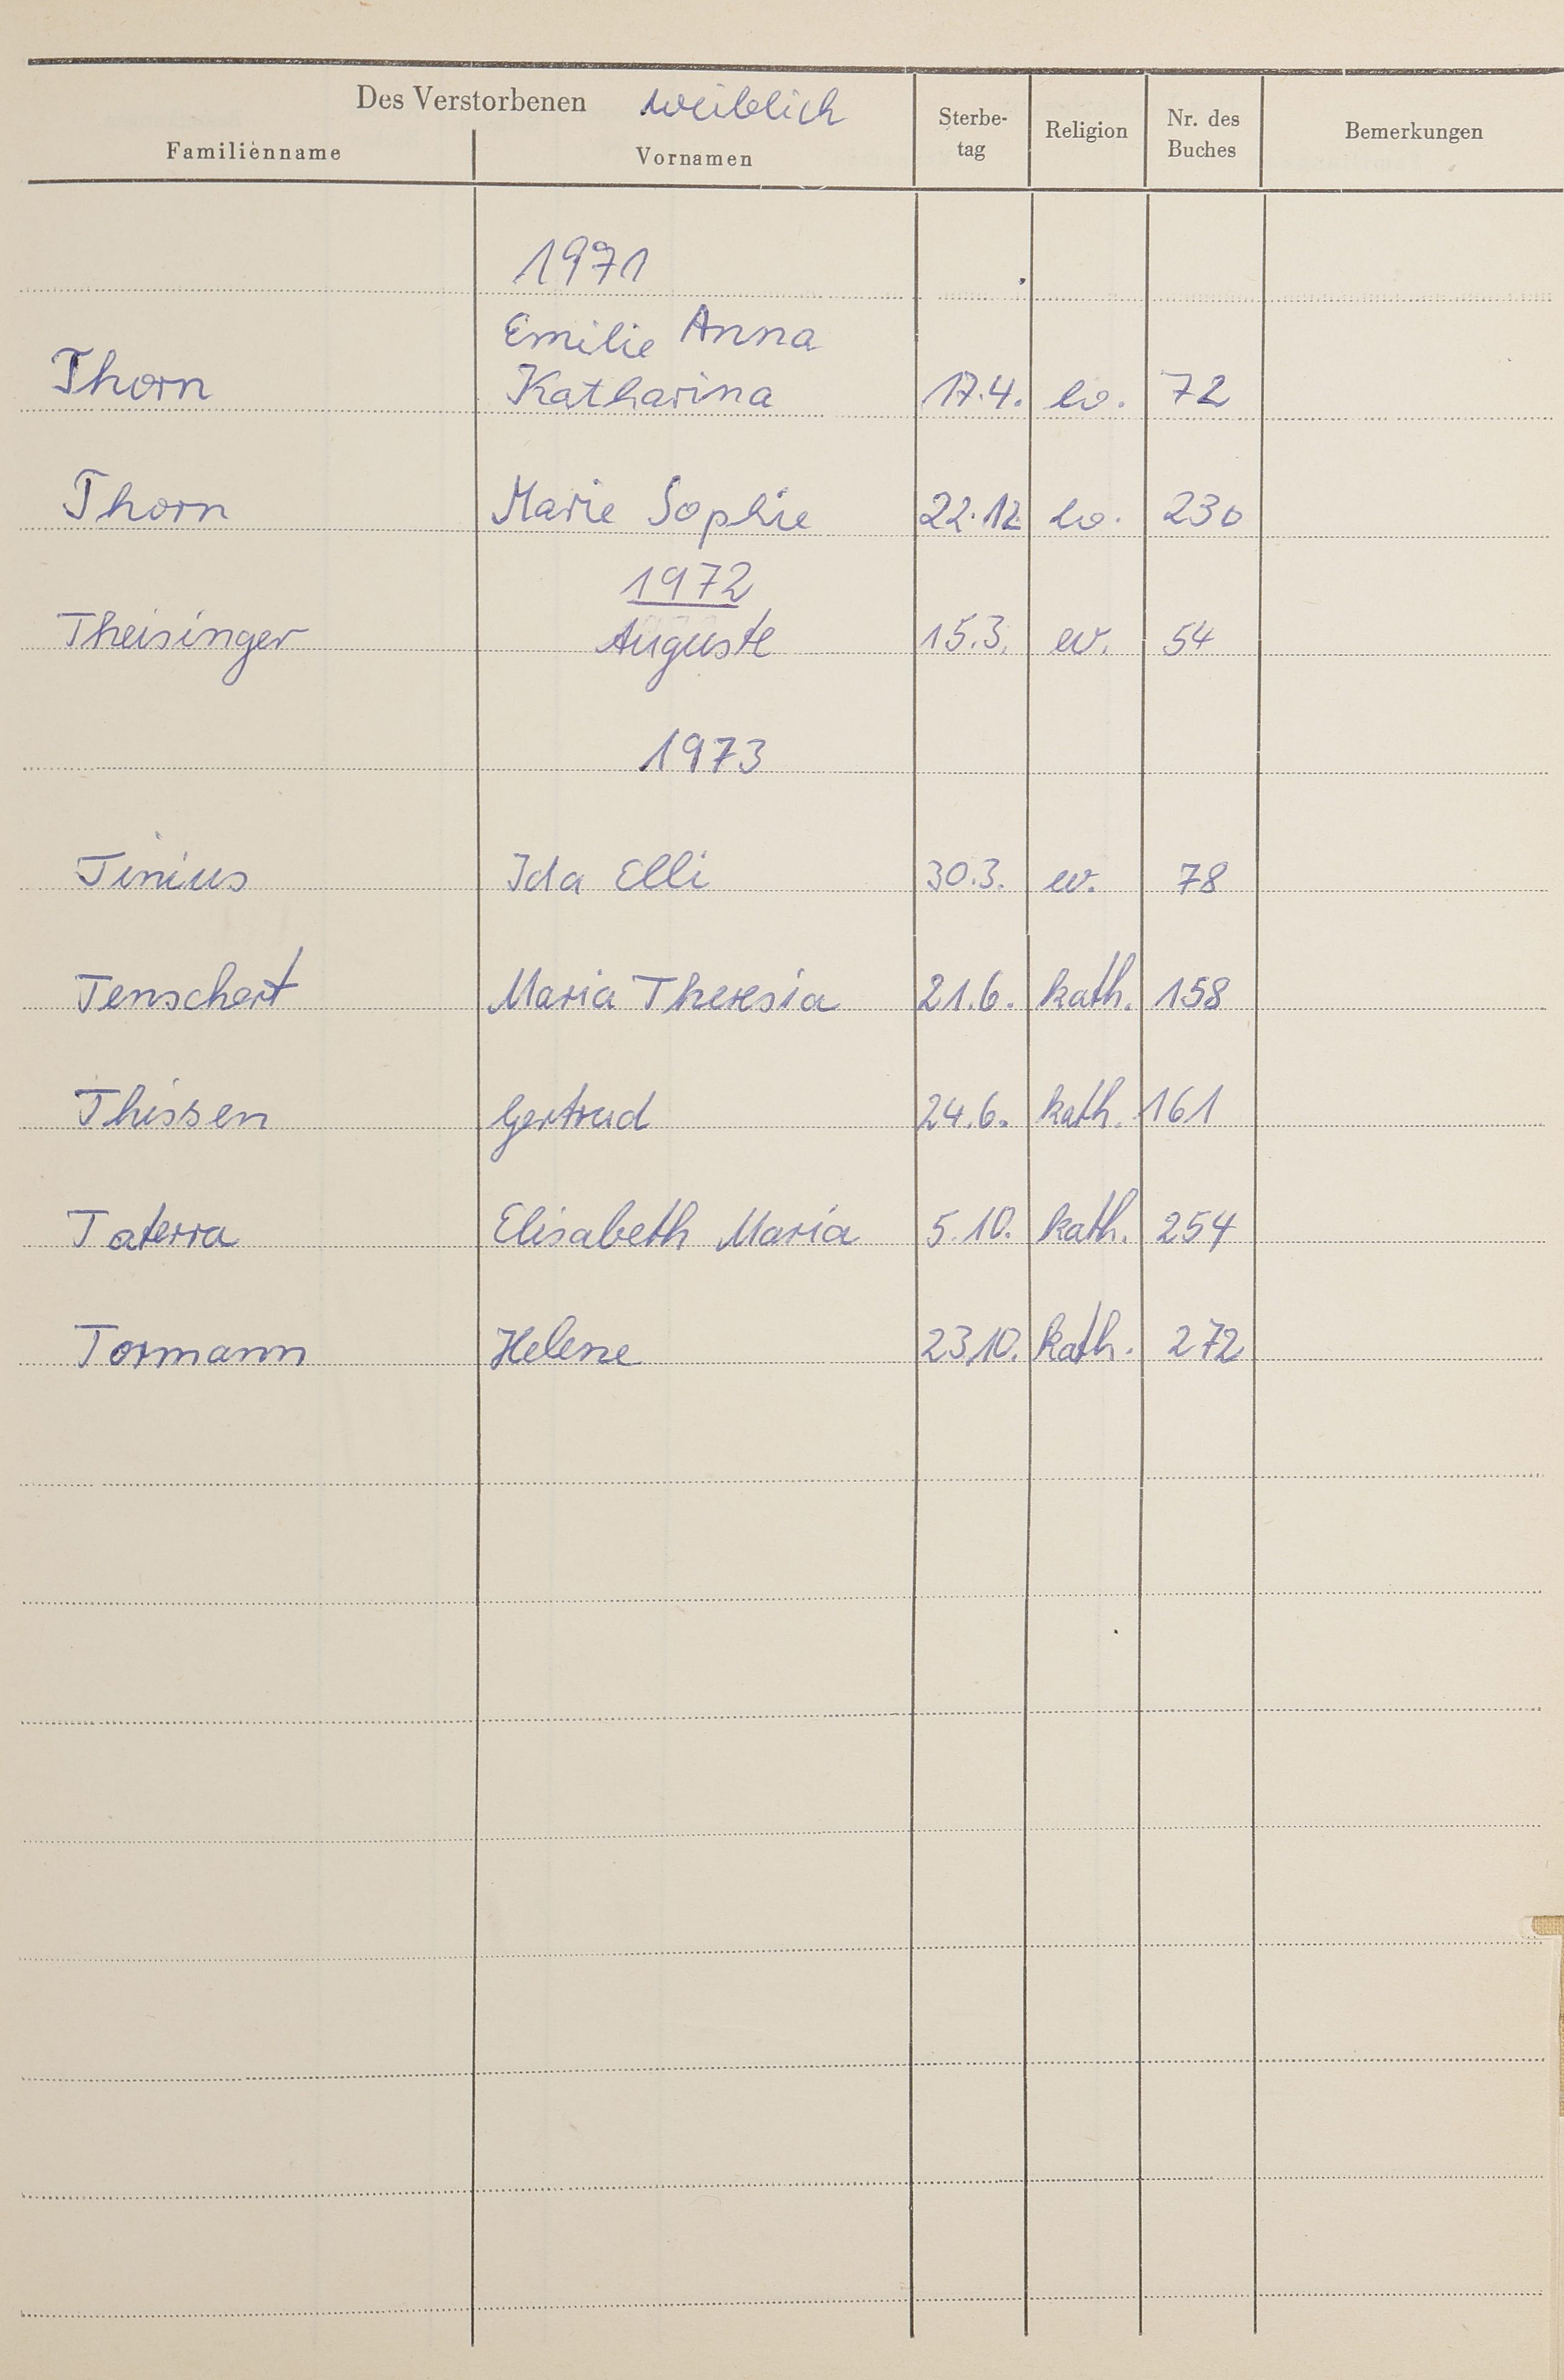 Des Verstorbenen weiblich
Familienname Vornamen Sterbe-tag Religion Nr. des Buches Bemerkungen
1971
Emilie Anna
Thorn Katharina 17.4. ev. 72
Thorn Marie Sophie 22.12. ev. 230
1972
Theisinger Auguste 15.3. ev. 54
1973
Tinius Ida Elli 30.3. ev. 78
Tenschert Maria Theresia 21.6. kath. 158
Thissen Gertrud 24.6. kath. 161
Taterra Elisabeth Maria 5.10. kath. 254
Tormann Helene 23.10. kath. 272